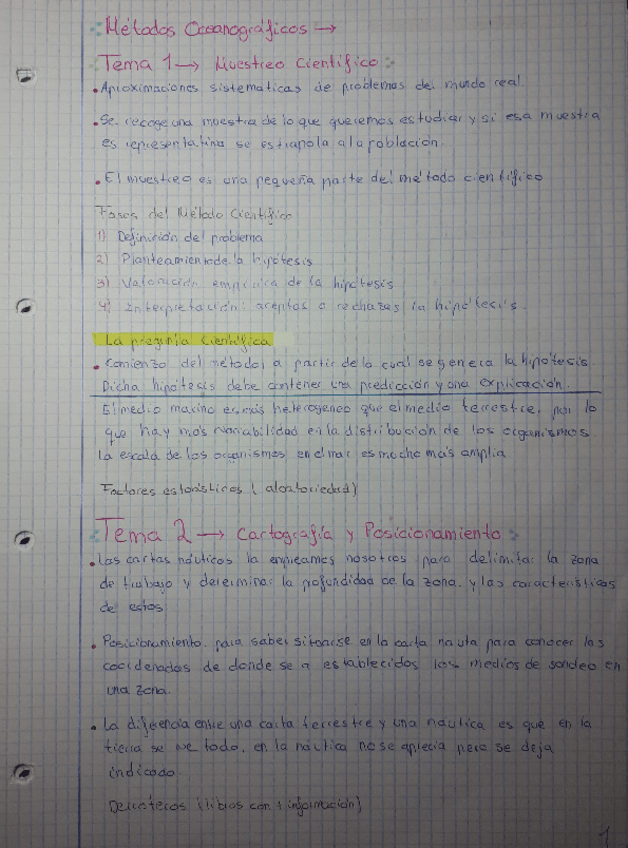 Métodos Oceanográficos →
Tema 1 → Muestreo Científico
• Aproximaciones sistematicas de problemas del mundo real.
• Se recoge una muestra de lo que queremos estudiar y si esa muestra
es representativa se estrapola a la población.
• El muestreo es una pequeña parte del método científico
Fases del Método Científico
1) Definición del problema
2) Planteamiento de la hipótesis
3) Valoración empírica de la hipótesis
4) Interpretación: aceptas o rechazas la hipótesis.
La pregunta Científica
• Comienzo del método, a partir de la cual se genera la hipótesis.
Dicha hipótesis debe contener una predicción y una explicación.
El medio marino es más heterogeneo que el medio terrestre, por lo
que hay más variabilidad en la distribución de los organismos.
La escala de los organismos en el mar es mucho más amplia
Factores estocásticos (aleatoriedad)
Tema 2 → Cartografía y Posicionamiento
• Las cartas náuticas la empleamos nosotros para delimitar la zona
de trabajo y determinar la profundidad de la zona y las características
de estos
• Posicionamiento para saber situarse en la carta nauta para conocer las
coordenadas de donde se a establecidos los medios de sondeo en
una zona.
• La diferencia entre una carta terrestre y una náutica es que en la
tierra se ve todo, en la náutica no se aprecia pero se deja
indicado
Derroteros (libros con + información)
1